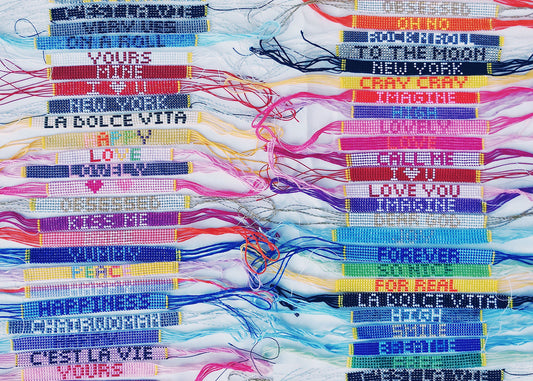 ON A ROLL
YOURS
MINE
I ♥ U
NEW YORK
LA DOLCE VITA
LOVE
LOVELY
♥
OBSESSED
KISS ME
YUMMY
HAPPINESS
CHAIRWOMAN
C'EST LA VIE
YOURS
OBSESSED
OH NO
ROCK N ROLL
TO THE MOON
NEW YORK
CRAY CRAY
IMAGINE
LOVELY
LOVE
CALL ME
I ♥ U
LOVE YOU
IMAGINE
FOREVER
SO NICE
FOR REAL
LA DOLCE VITA
HIGH
SMILE
BREATHE
C'EST LA VIE